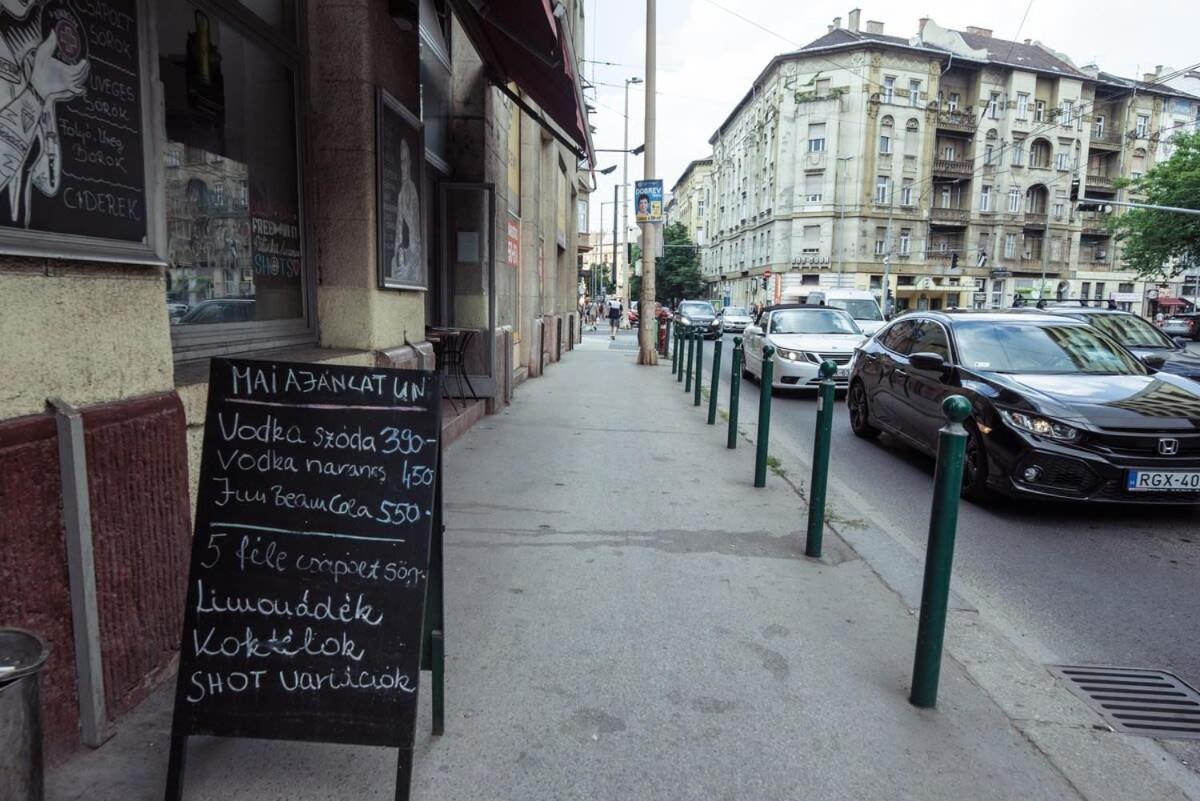 CSAPOLT
SÖRÖK
ÜVEGES
SÖRÖK
Folyó, Üveg
BOROK
CIDEREK
SHOTS
DOBREV
MAI AJÁNLATUN
Vodka szóda 390-
Vodka narancs 450
Jim Beam Cola 550-
5 féle csapolt sör
Limonádék
Koktélok
SHOT Variációk
RGX-40